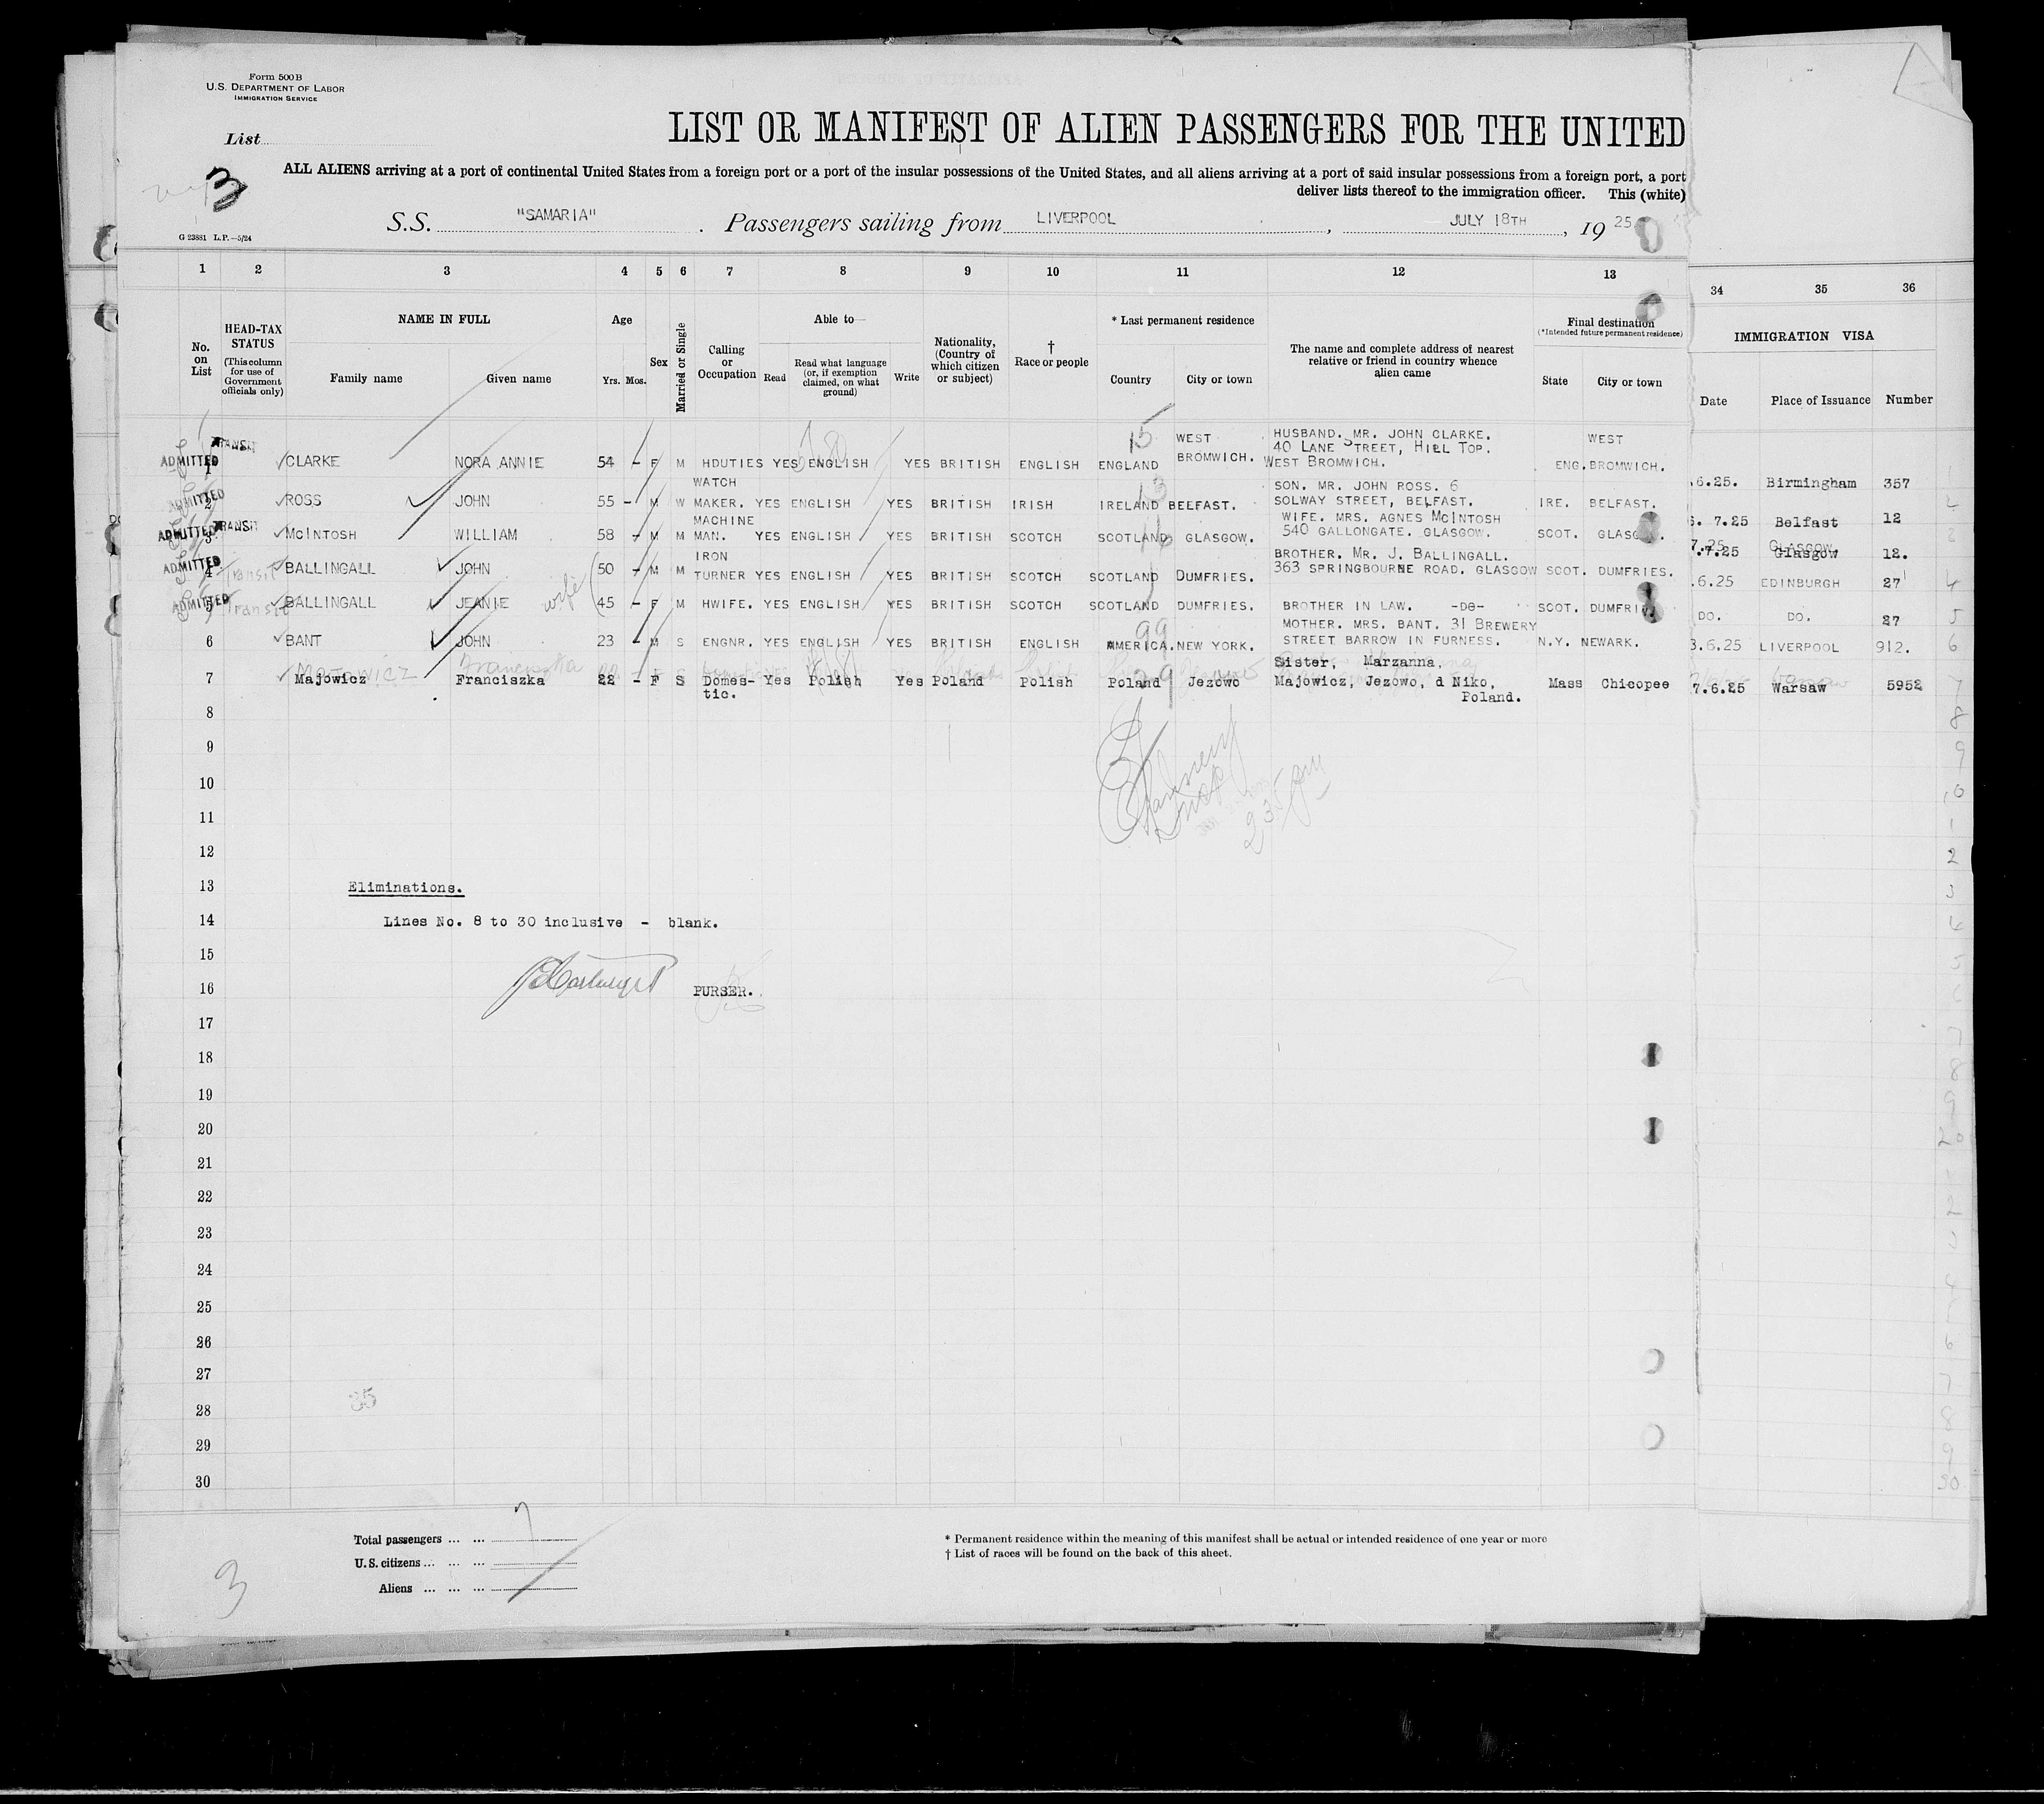 Form 500B
U.S. DEPARTMENT OF LABOR
IMMIGRATION SERVICE
List
3
LIST OR MANIFEST OF ALIEN PASSENGERS FOR THE UNITED
ALL ALIENS arriving at a port of continental United States from a foreign port or a port of the insular possessions of the United States, and all aliens arriving at a port of said insular possessions from a foreign port, a port
deliver lists thereof to the immigration officer. This (white)
S.S. "SAMARIA". Passengers sailing from LIVERPOOL, JULY 18TH, 1925
G 23881 L.P.—5/24
1 2 3 4 5 6 7 8 9 10 11 12 13 34 35 36
No. on List
HEAD-TAX STATUS
(This column for use of Government officials only)
NAME IN FULL
Family name Given name
Age
Yrs. Mos.
Sex
Married or Single
Calling or Occupation
Able to—
Read
Read what language (or, if exemption claimed, on what ground)
Write
Nationality, (Country of which citizen or subject)
† Race or people
* Last permanent residence
Country City or town
The name and complete address of nearest relative or friend in country whence alien came
Final destination
(*Intended future permanent residence)
State City or town
IMMIGRATION VISA
Date Place of Issuance Number
ADMITTED TRANSIT 1 CLARKE NORA ANNIE 54 - F M HDUTIES YES ENGLISH YES BRITISH ENGLISH ENGLAND WEST BROMWICH. HUSBAND. MR. JOHN CLARKE. 40 LANE STREET, HILL TOP. WEST BROMWICH. ENG. WEST BROMWICH. .6.25. Birmingham 357
ADMITTED 2 ROSS JOHN 55 - M W WATCH MAKER. YES ENGLISH YES BRITISH IRISH IRELAND BELFAST. SON. MR. JOHN ROSS. 6 SOLWAY STREET, BELFAST. IRE. BELFAST. 7.25 Belfast 12
ADMITTED TRANSIT 3 MCINTOSH WILLIAM 58 - M M MACHINE MAN. YES ENGLISH YES BRITISH SCOTCH SCOTLAND GLASGOW. WIFE. MRS. AGNES MCINTOSH 540 GALLONGATE. GLASGOW. SCOT. GLASGOW. 7.25 Glasgow 12.
ADMITTED Transit 4 BALLINGALL JOHN 50 - M M IRON TURNER YES ENGLISH YES BRITISH SCOTCH SCOTLAND DUMFRIES. BROTHER. MR. J. BALLINGALL. 363 SPRINGBOURNE ROAD. GLASGOW SCOT. DUMFRIES. .6.25 EDINBURGH 27
ADMITTED Transit 5 BALLINGALL JEANIE wife 45 - F M HWIFE. YES ENGLISH YES BRITISH SCOTCH SCOTLAND DUMFRIES. BROTHER IN LAW. -DO- SCOT. DUMFRI DO. DO. 27
6 BANT JOHN 23 - M S ENGNR. YES ENGLISH YES BRITISH ENGLISH AMERICA. NEW YORK. MOTHER. MRS. BANT. 31 BREWERY STREET BARROW IN FURNESS. N.Y. NEWARK. 3.6.25 LIVERPOOL 912.
7 Majowicz Franciszka 22 - F S Domestic. Yes Polish Yes Poland Polish Poland Jezowo Sister, Marzanna, Majowicz, Jezowo, d Niko, Poland. Mass Chicopee 7.6.25 Warsaw 5952
8
9
10
11
12
13 Eliminations.
14 Lines No. 8 to 30 inclusive - blank.
15
16 PURSER.
17
18
19
20
21
22
23
24
25
26
27
28
29
30
35
Total passengers ... ... 7
U.S. citizens ... ... ...
Aliens ... ... ...
* Permanent residence within the meaning of this manifest shall be actual or intended residence of one year or more
† List of races will be found on the back of this sheet.
3